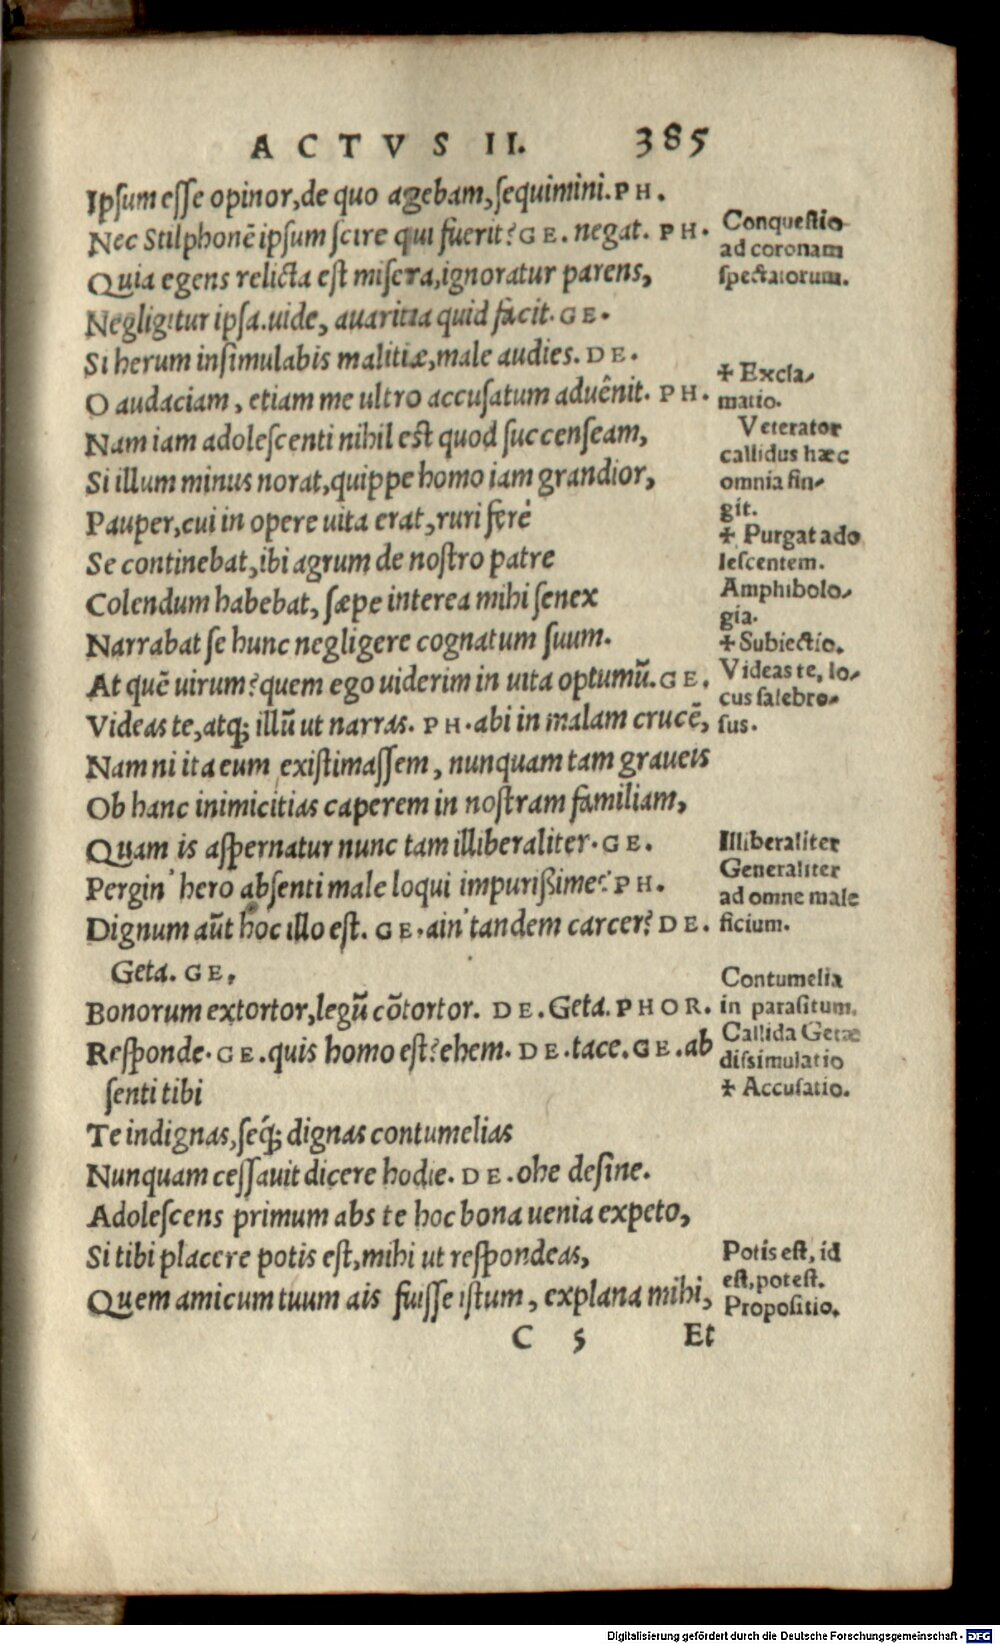 ACTVS II. 385
Ipſum eſſe opinor, de quo agebam, ſequimini. PH.
Nec Stilphonē ipſum ſcire qui fuerit? GE. negat. PH.
Quia egens relicta eſt miſera, ignoratur parens,
Negligitur ipſa. uide, auaritia quid facit. GE.
Si herum inſimulabis malitiæ, male audies. DE.
O audaciam, etiam me ultro accuſatum aduênit. PH.
Nam iam adoleſcenti nihil eſt quod ſuccenſeam,
Si illum minus norat, quippe homo iam grandior,
Pauper, cui in opere uita erat, ruri ferè
Se continebat, ibi agrum de noſtro patre
Colendum habebat, ſæpe interea mihi ſenex
Narrabat ſe hunc negligere cognatum ſuum.
At quē uirum? quem ego uiderim in uita optumū. GE.
Videas te, atq; illū ut narras. PH. abi in malam crucē,
Nam ni ita eum exiſtimaſſem, nunquam tam graueis
Ob hanc inimicitias caperem in noſtram familiam,
Quam is aſpernatur nunc tam illiberaliter. GE.
Pergin' hero abſenti male loqui impurißime? PH.
Dignum aūt hoc illo eſt. GE. ain' tandem carcer? DE.
Geta. GE.
Bonorum extortor, legū cōtortor. DE. Geta. PHOR.
Reſponde. GE. quis homo eſt? ehem. DE. tace. GE. ab
ſenti tibi
Te indignas, ſeq́; dignas contumelias
Nunquam ceſſauit dicere hodie. DE. ohe deſine.
Adoleſcens primum abs te hoc bona uenia expeto,
Si tibi placere potis eſt, mihi ut reſpondeas,
Quem amicum tuum ais fuiſſe iſtum, explana mihi,
C 5 Et
Conqueſtio
ad coronam
ſpectatorum.
✠ Excla-
matio.
Veterator
callidus hæc
omnia fin-
git.
✠ Purgat ado
leſcentem.
Amphibolo-
gia.
✠ Subiectio.
Videas te, lo-
cus ſalebro-
ſus.
Illiberaliter
Generaliter
ad omne male
ficium.
Contumelia
in paraſitum.
Callida Getæ
diſsimulatio
✠ Accuſatio.
Potis eſt, id
eſt, poteſt.
Propoſitio.
Digitalisierung gefördert durch die Deutsche Forschungsgemeinschaft - DFG